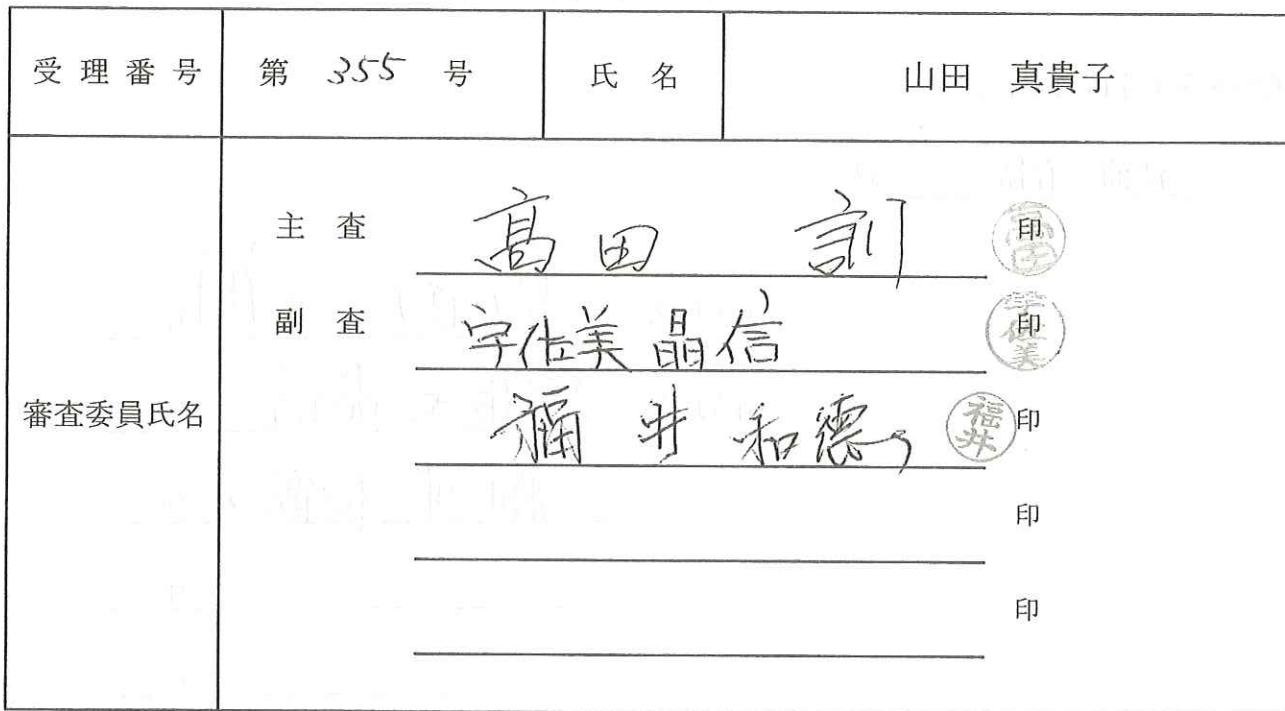 受理番号 第 355 号 氏名 山田 真貴子
審査委員氏名
主査 髙田 訓 印 髙田
副査 宇佐美晶信 印 宇佐美
福井和德 福井 印
印
印